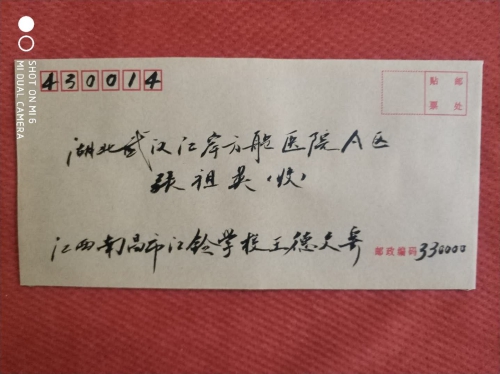 SHOT ON MI 6
MI DUAL CAMERA
430014
贴 邮
票 处
湖北武汉江岸方舱医院A区
张祖英(收)
江西南昌市江铃学校王德文寄
邮政编码 330000